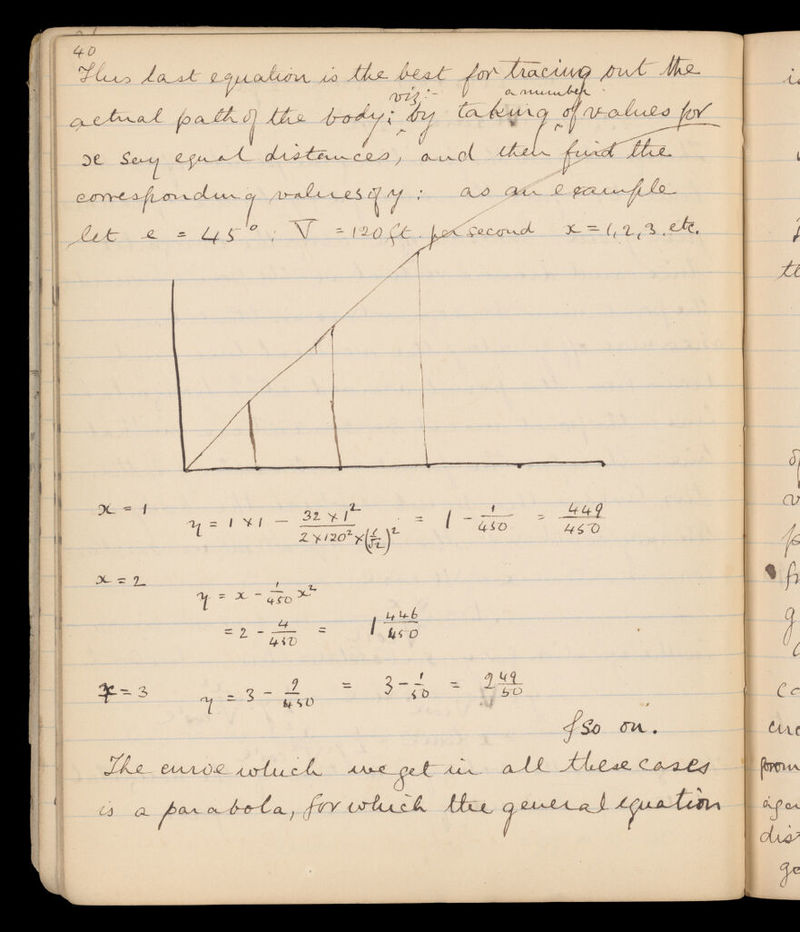 40
This last equation is the best for tracing out the
viz:- a number
actual path of the body; by taking of values for
x say equal distances, and then find the
corresponding values of y : as an example
let e = 45° : V = 120 ft. per second x = 1, 2, 3. etc.
x = 1 y = 1 × 1 − 32 × 1² / 2 × 120² × (1/√2)² = 1 − 1/450 = 449/450
x = 2 y = x − 1/450 x²
= 2 − 4/450 = 1 446/450
x = 3 y = 3 − 9/450 = 3 − 1/50 = 2 49/50
& so on.
The curve which we get in all these cases
is a parabola, for which the general equation
is
th
of
v
p
fr
g
co
curv
from
agai
dist
ge